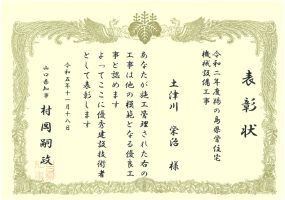 表彰状
令和二年度陽の島県営住宅
機械設備工事
土津川 栄治 様
あなたが施工管理された右の
工事は他の模範となる優良工
事と認めます
よってここに優秀建設技術者
として表彰します
令和五年十一月十八日
山口県知事 村岡嗣政